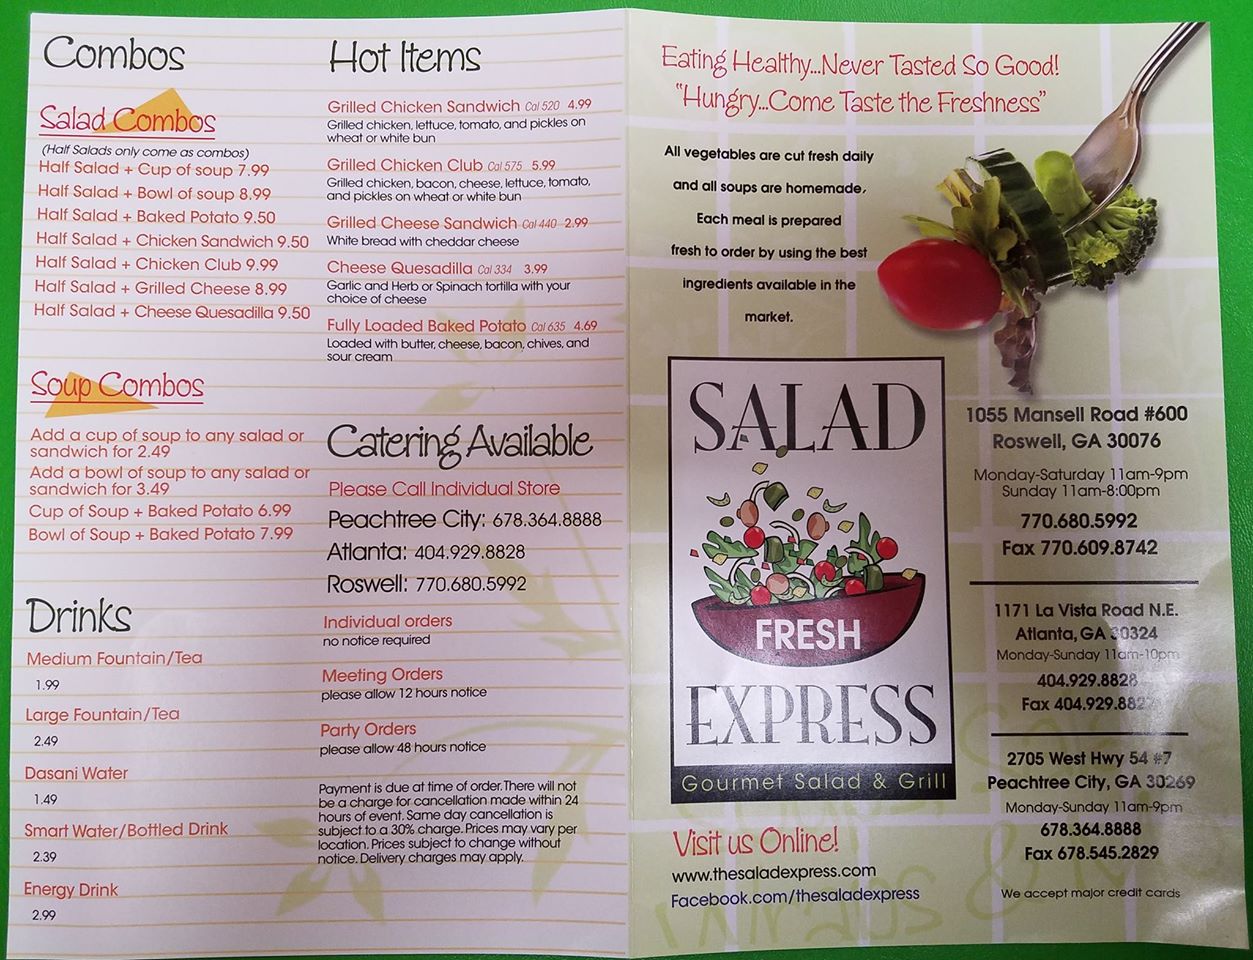 Combos
Salad Combos
(Half Salads only come as combos)
Half Salad + Cup of soup 7.99
Half Salad + Bowl of soup 8.99
Half Salad + Baked Potato 9.50
Half Salad + Chicken Sandwich 9.50
Half Salad + Chicken Club 9.99
Half Salad + Grilled Cheese 8.99
Half Salad + Cheese Quesadilla 9.50
Soup Combos
Add a cup of soup to any salad or
sandwich for 2.49
Add a bowl of soup to any salad or
sandwich for 3.49
Cup of Soup + Baked Potato 6.99
Bowl of Soup + Baked Potato 7.99
Drinks
Medium Fountain/Tea
1.99
Large Fountain/Tea
2.49
Dasani Water
1.49
Smart Water/Bottled Drink
2.39
Energy Drink
2.99
Hot Items
Grilled Chicken Sandwich Cal 520 4.99
Grilled chicken, lettuce, tomato, and pickles on
wheat or white bun
Grilled Chicken Club Cal 575 5.99
Grilled chicken, bacon, cheese, lettuce, tomato,
and pickles on wheat or white bun
Grilled Cheese Sandwich Cal 440 2.99
White bread with cheddar cheese
Cheese Quesadilla Cal 334 3.99
Garlic and Herb or Spinach tortilla with your
choice of cheese
Fully Loaded Baked Potato Cal 635 4.69
Loaded with butter, cheese, bacon, chives, and
sour cream
Catering Available
Please Call Individual Store
Peachtree City: 678.364.8888
Atlanta: 404.929.8828
Roswell: 770.680.5992
Individual orders
no notice required
Meeting Orders
please allow 12 hours notice
Party Orders
please allow 48 hours notice
Payment is due at time of order. There will not
be a charge for cancellation made within 24
hours of event. Same day cancellation is
subject to a 30% charge. Prices may vary per
location. Prices subject to change without
notice. Delivery charges may apply.
Eating Healthy...Never Tasted So Good!
"Hungry...Come Taste the Freshness"
All vegetables are cut fresh daily
and all soups are homemade.
Each meal is prepared
fresh to order by using the best
ingredients available in the
market.
SALAD
FRESH
EXPRESS
Gourmet Salad & Grill
Visit us Online!
www.thesaladexpress.com
Facebook.com/thesaladexpress
1055 Mansell Road #600
Roswell, GA 30076
Monday-Saturday 11am-9pm
Sunday 11am-8:00pm
770.680.5992
Fax 770.609.8742
1171 La Vista Road N.E.
Atlanta, GA 30324
Monday-Sunday 11am-10pm
404.929.8828
Fax
2705 West Hwy 54 #7
Peachtree City, GA 30269
Monday-Sunday 11am-9pm
678.364.8888
Fax 678.545.2829
We accept major credit cards
Wraps &